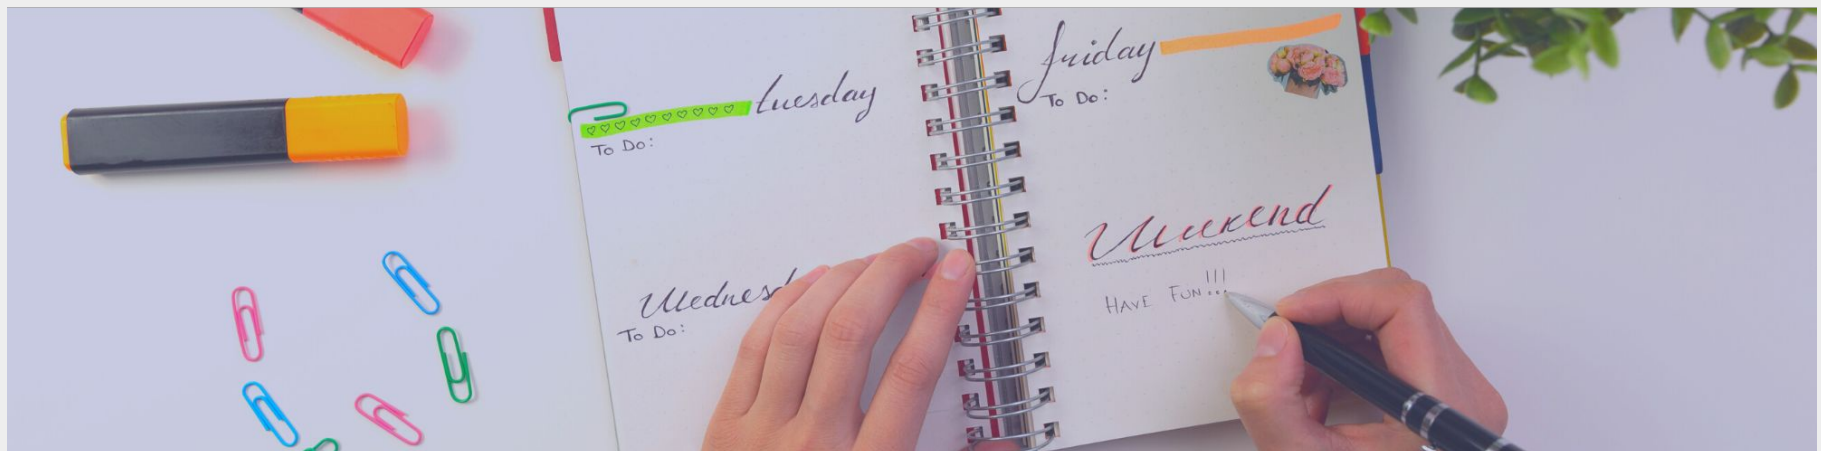 tuesday
To Do:
To Do:
friday
To Do:
Weekend
HAVE FUN!!!